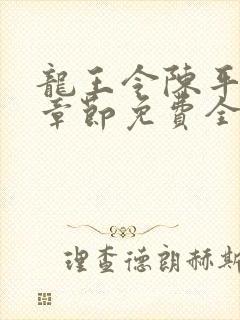 龍王令陳平
章節免費全
理查德朗赫斯